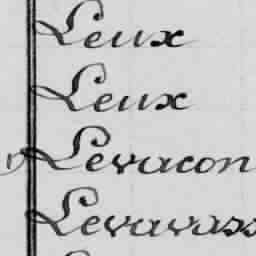 Leux
Leux
Levacon
Levavass